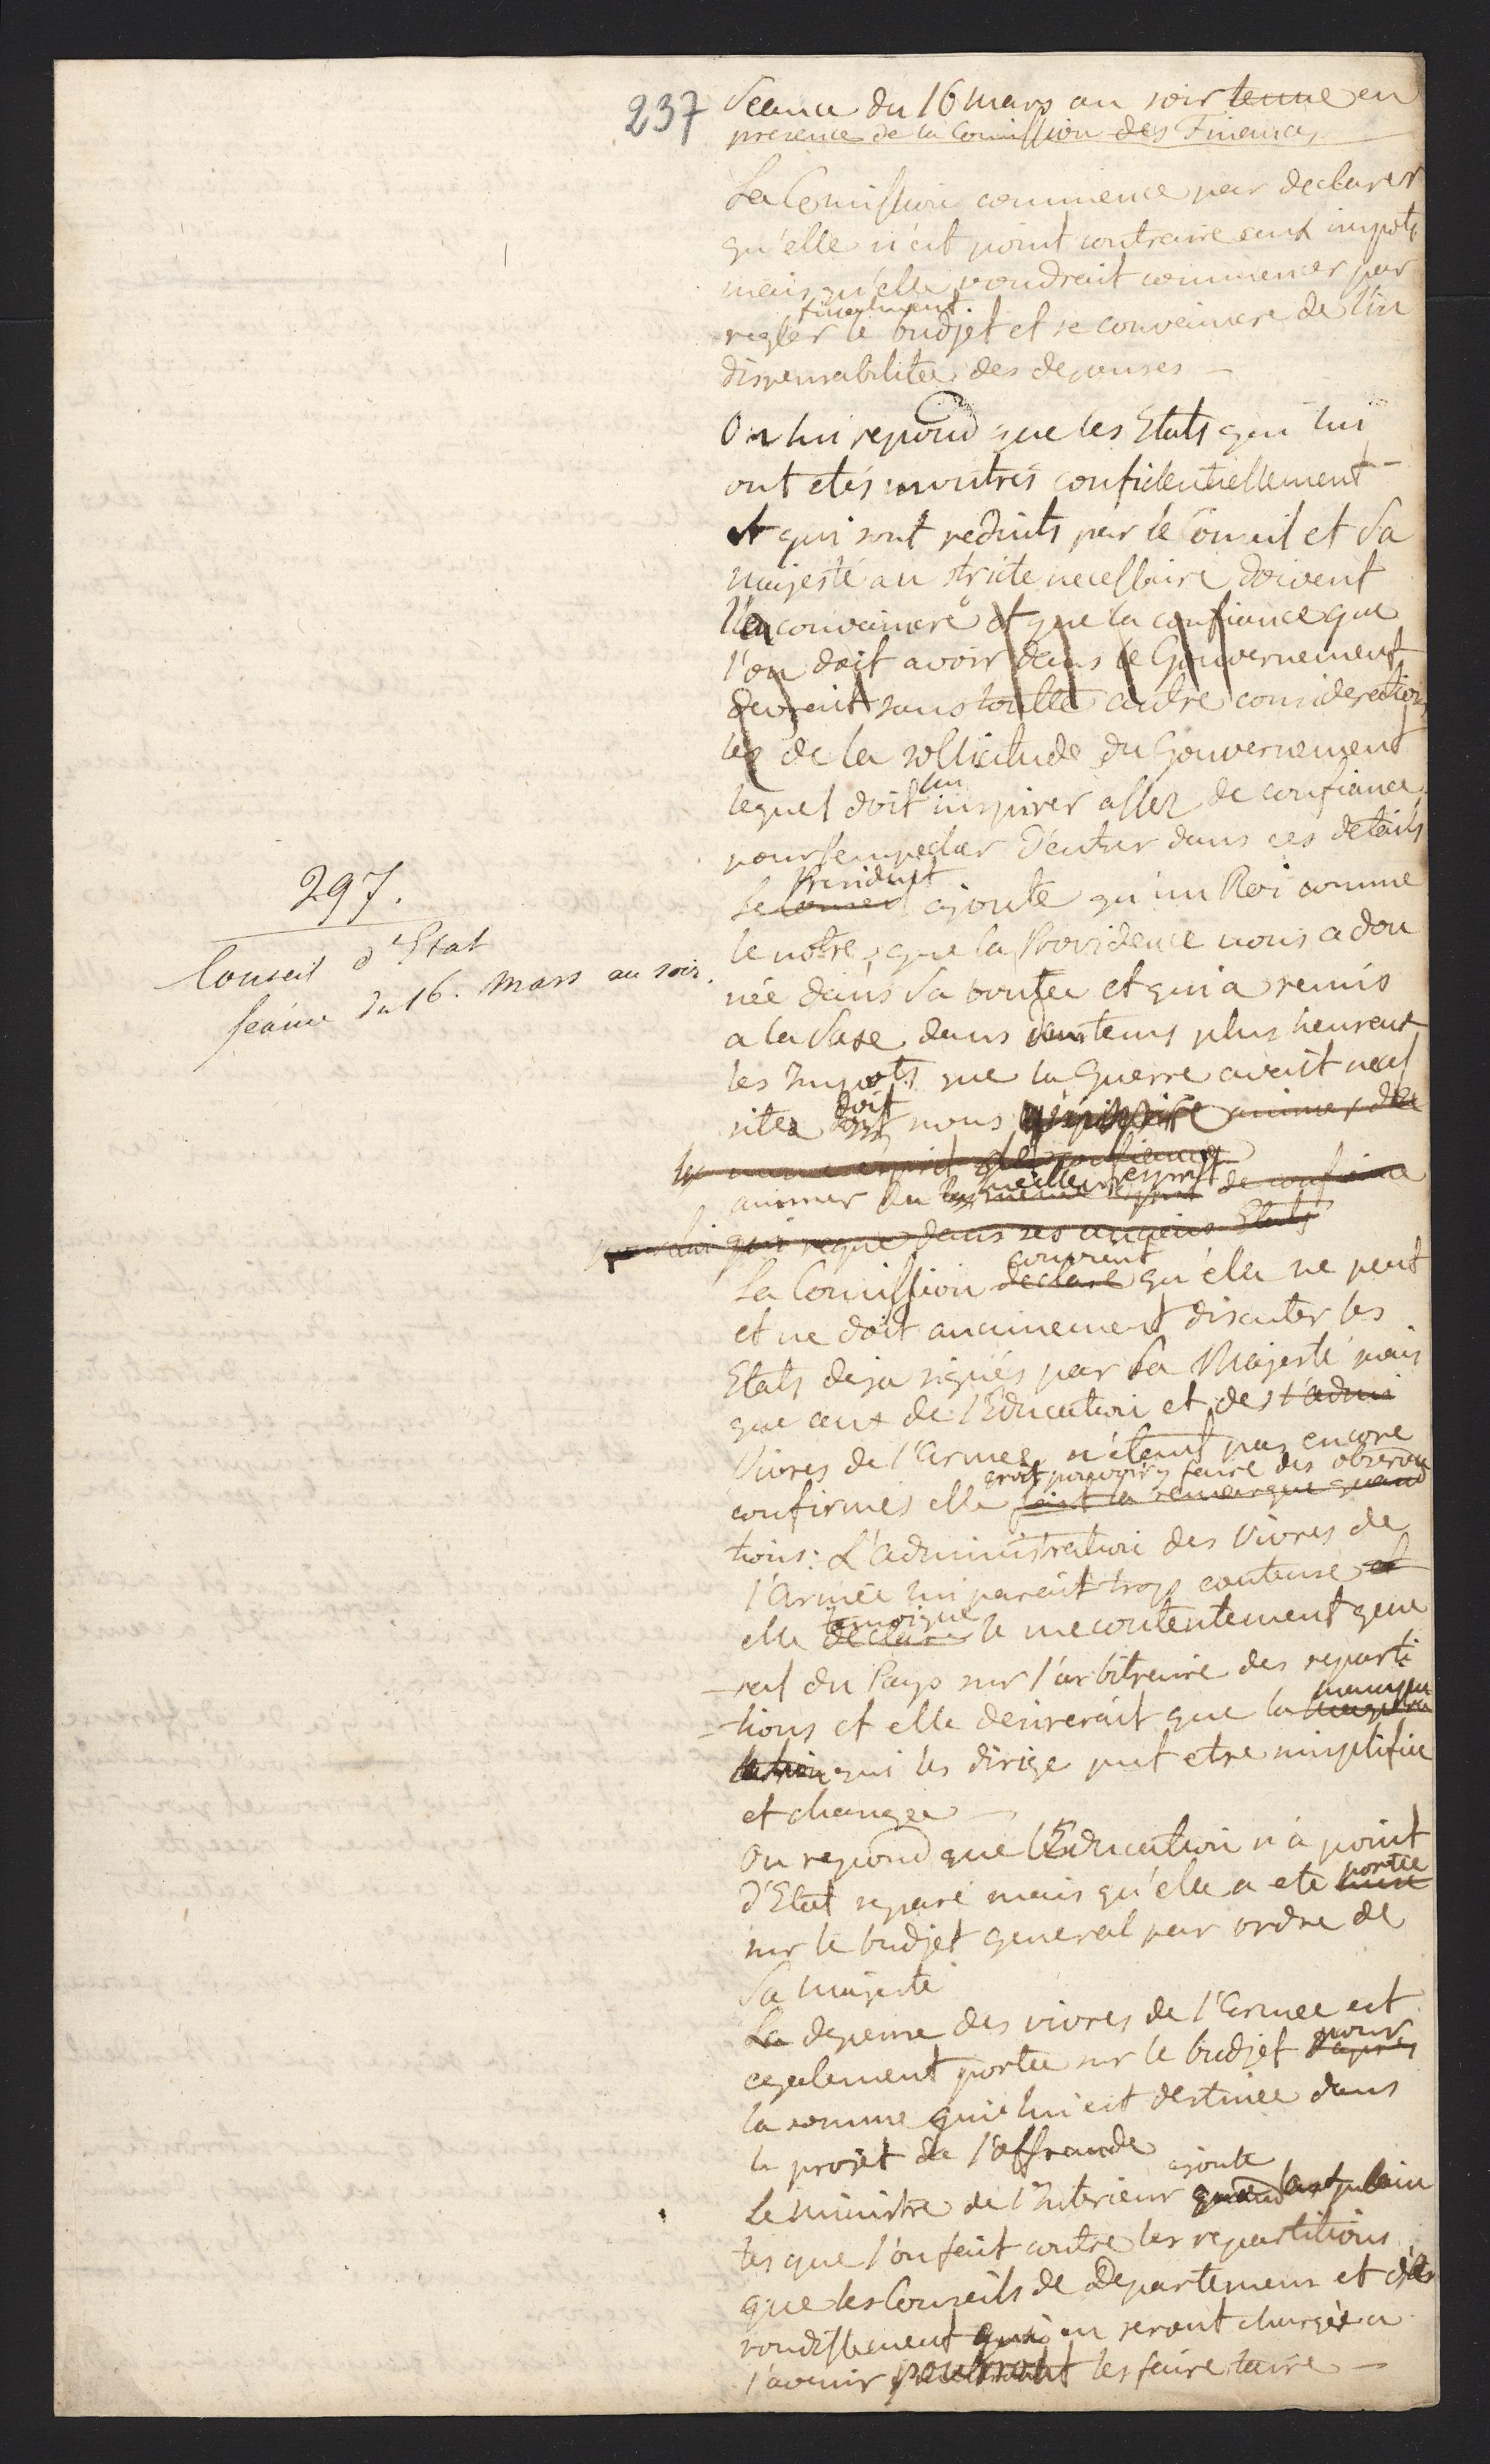 237
Seance du 16 mars au soir tenue en
presence de la Comission des Finances
La Comission commence par declarer
qu'elle n'est point contraire aux impots
mais qu'elle voudrait commencer par
finalment
regler le budjet et se convaincre de l'in
dispensabilitée des depenses —
On lui repond que les Etats qui lui
ont etés montrés confidentiellement —
et qui sont reduits par le Conseil et Sa
Majesté au stricte necessaire doivent
l'en convaincre et que la confiance que
l'on doit avoir dans le Gouvernement
devrait sans toutte autre consideration
de la sollicitude du Gouvernement
lui
lequel doit inspirer assez de confiance
pour l'empecher d'entrer dans ces details
President
Le Conseil ajoute qu'un Roi comme
le notre, que la Providence nous a don
née dans Sa bontée et qui a remis
a la Saxe dans des tems plus heureux
les Impots que la Guerre avait neces
doit
sites nous animer de
le meme esprit de confiance
meilleur esprit
animer du meme esprit de confiance
qui regne dans ses anciens Etats
convient
La Comission declare qu'elle ne peut
et ne doit aucunement discuter les
Etats deja signés par Sa Majesté mais
que ceux de l'Education et des l'admi
Vivres de l'Armee n'étant pas encore
croit pouvoir y faire des observa
confirmés elle fait la remarque quand
tions: L'administration des Vivres de
l'Armée lui parait trop couteuse et
temoigne
elle declare le mecontentement gene
-ral du Pays sur l'arbitraire des reparti
-tions et elle desirerait que la manipu
lation qui les dirige put etre simplifiée
et changée —
On repond que l'Education n'a point
portée
d'Etat separé mais qu'elle a ete mise
sur le budjet general par ordre de
Sa Majesté
La depense des vivres de l'Armee est
pour
egalement portée sur le budjet d'apres
la somme qui lui est destinée dans
le projet de l'offrande
ajoute
Le Ministre de l'Interieur quand aux plain
tes que l'on fait contre les repartitions
que les Conseils de Departemens et d'ar
rondissement qui en seront chargés a
l'avenir pourront les faire taire —
297.
Conseil d'Etat
Séance du 16. Mars au soir.